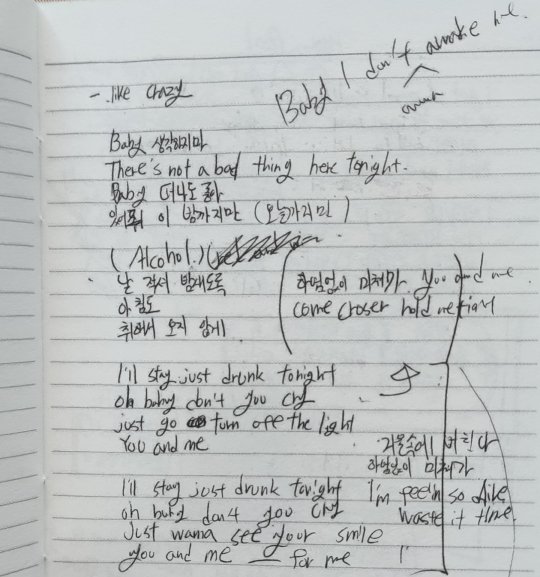 like crazy
Baby I don't awake me
Baby 생각하지마
There's not a bad thing here tonight.
Baby 떠나도 좋아
있어줘 이 밤까지만 (오늘까지만)
(Alcohol.)
날 적셔 밤새도록
아침도
취해서 오지 않게
하염없이 미쳐가 you and me
come croser hold me tight
I'll stay just drunk tonight
oh baby don't you cry
just go turn off the light
You and me
거울속에 비친다
하염없이 미쳐가
I'm feelin so alive
waste it time
I'll stay just drunk tonight
oh baby don't you cry
Just wana see your smile
you and me — for me